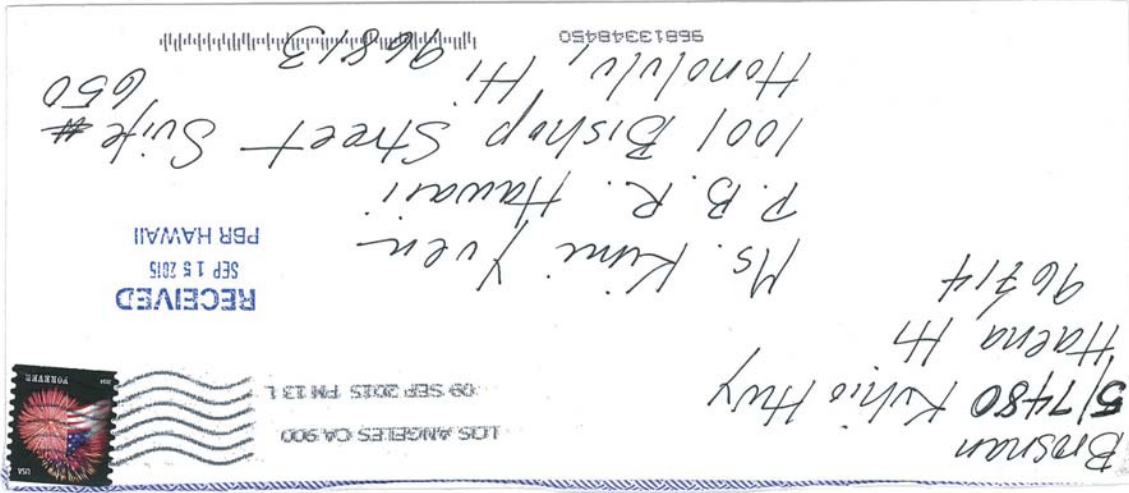 Brosnan
5/7480 Kuhio Hwy
Haena HI
96714
LOS ANGELES CA 900
09 SEP 2015 PM 13 L
USA
FOREVER
2014
RECEIVED
SEP 15 2015
PBR HAWAII
Ms. Kimi Yuen
P.B.R. Hawaii
1001 Bishop Street Suite #
650
Honolulu, HI 96813
96813348450